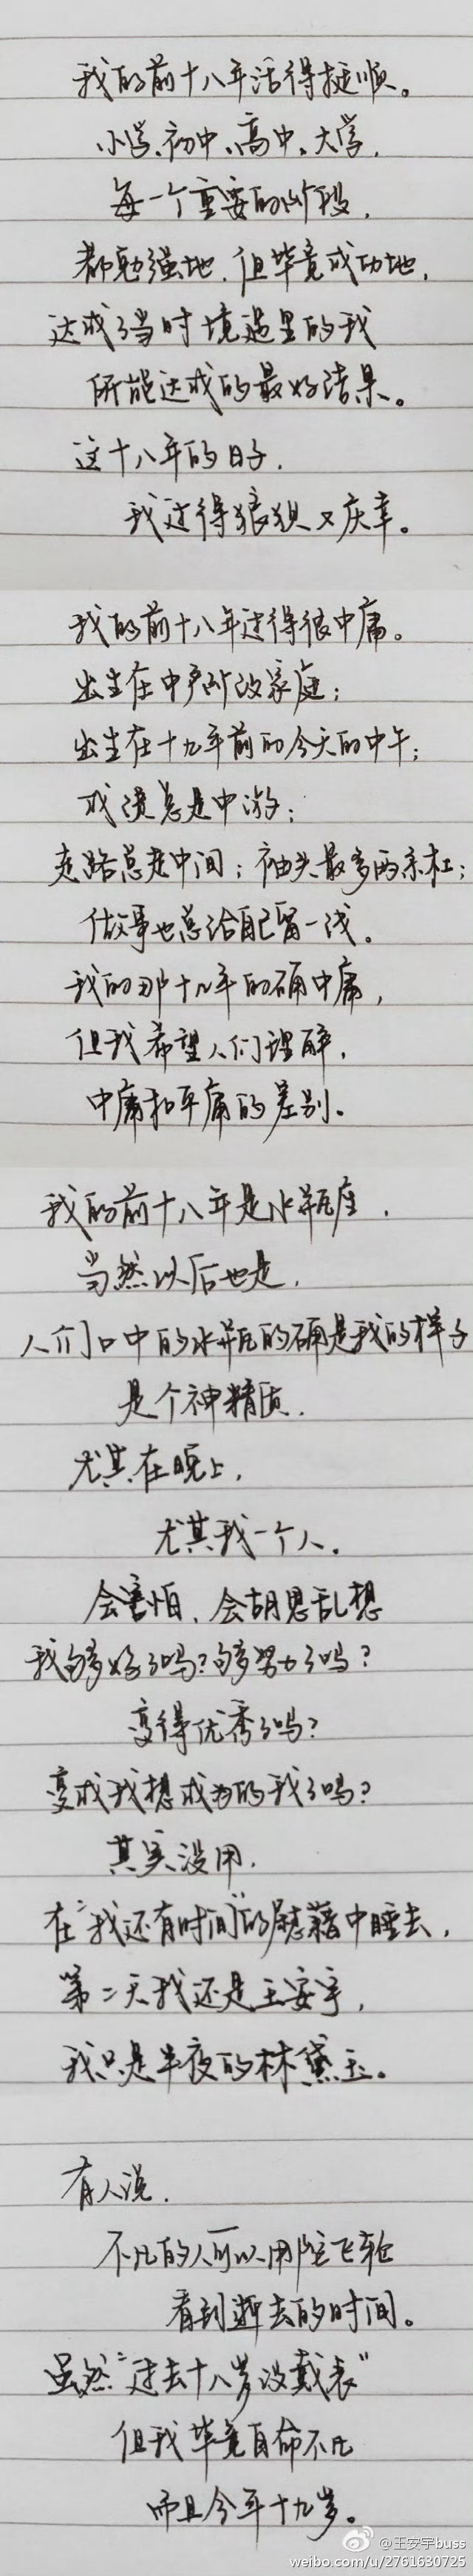 我的前十八年活得挺顺。
小学、初中、高中、大学，
每一个重要的阶段，
都勉强地，但毕竟成功地，
达成了当时境遇里的我
所能达成的最好结果。
这十八年的日子，
我过得狼狈又庆幸。
我的前十八年过得很中庸。
出生在中产阶级家庭；
出生在十九年前的今天的中午；
成绩总是中游；
走路总走中间；袖头最多两条杠；
做事也总给自己留一线。
我的那十八年的确中庸，
但我希望人们理解，
中庸和平庸的差别。
我的前十八年是水瓶座，
当然以后也是，
人们口中的水瓶的确是我的样子
是个神精质，
尤其在晚上，
尤其我一个人。
会害怕，会胡思乱想
我够好了吗？够努力了吗？
变得优秀了吗？
变成我想成为的我了吗？
其实没用，
在“我还有时间”的慰藉中睡去，
第二天我还是王安宇，
我只是半夜的林黛玉。
有人说，
不凡的人可以用陀飞轮
看到逝去的时间。
虽然“过去十八岁没戴表”
但我毕竟自命不凡
而且今年十九岁。
@王安宇buss
weibo.com/u/2761630725